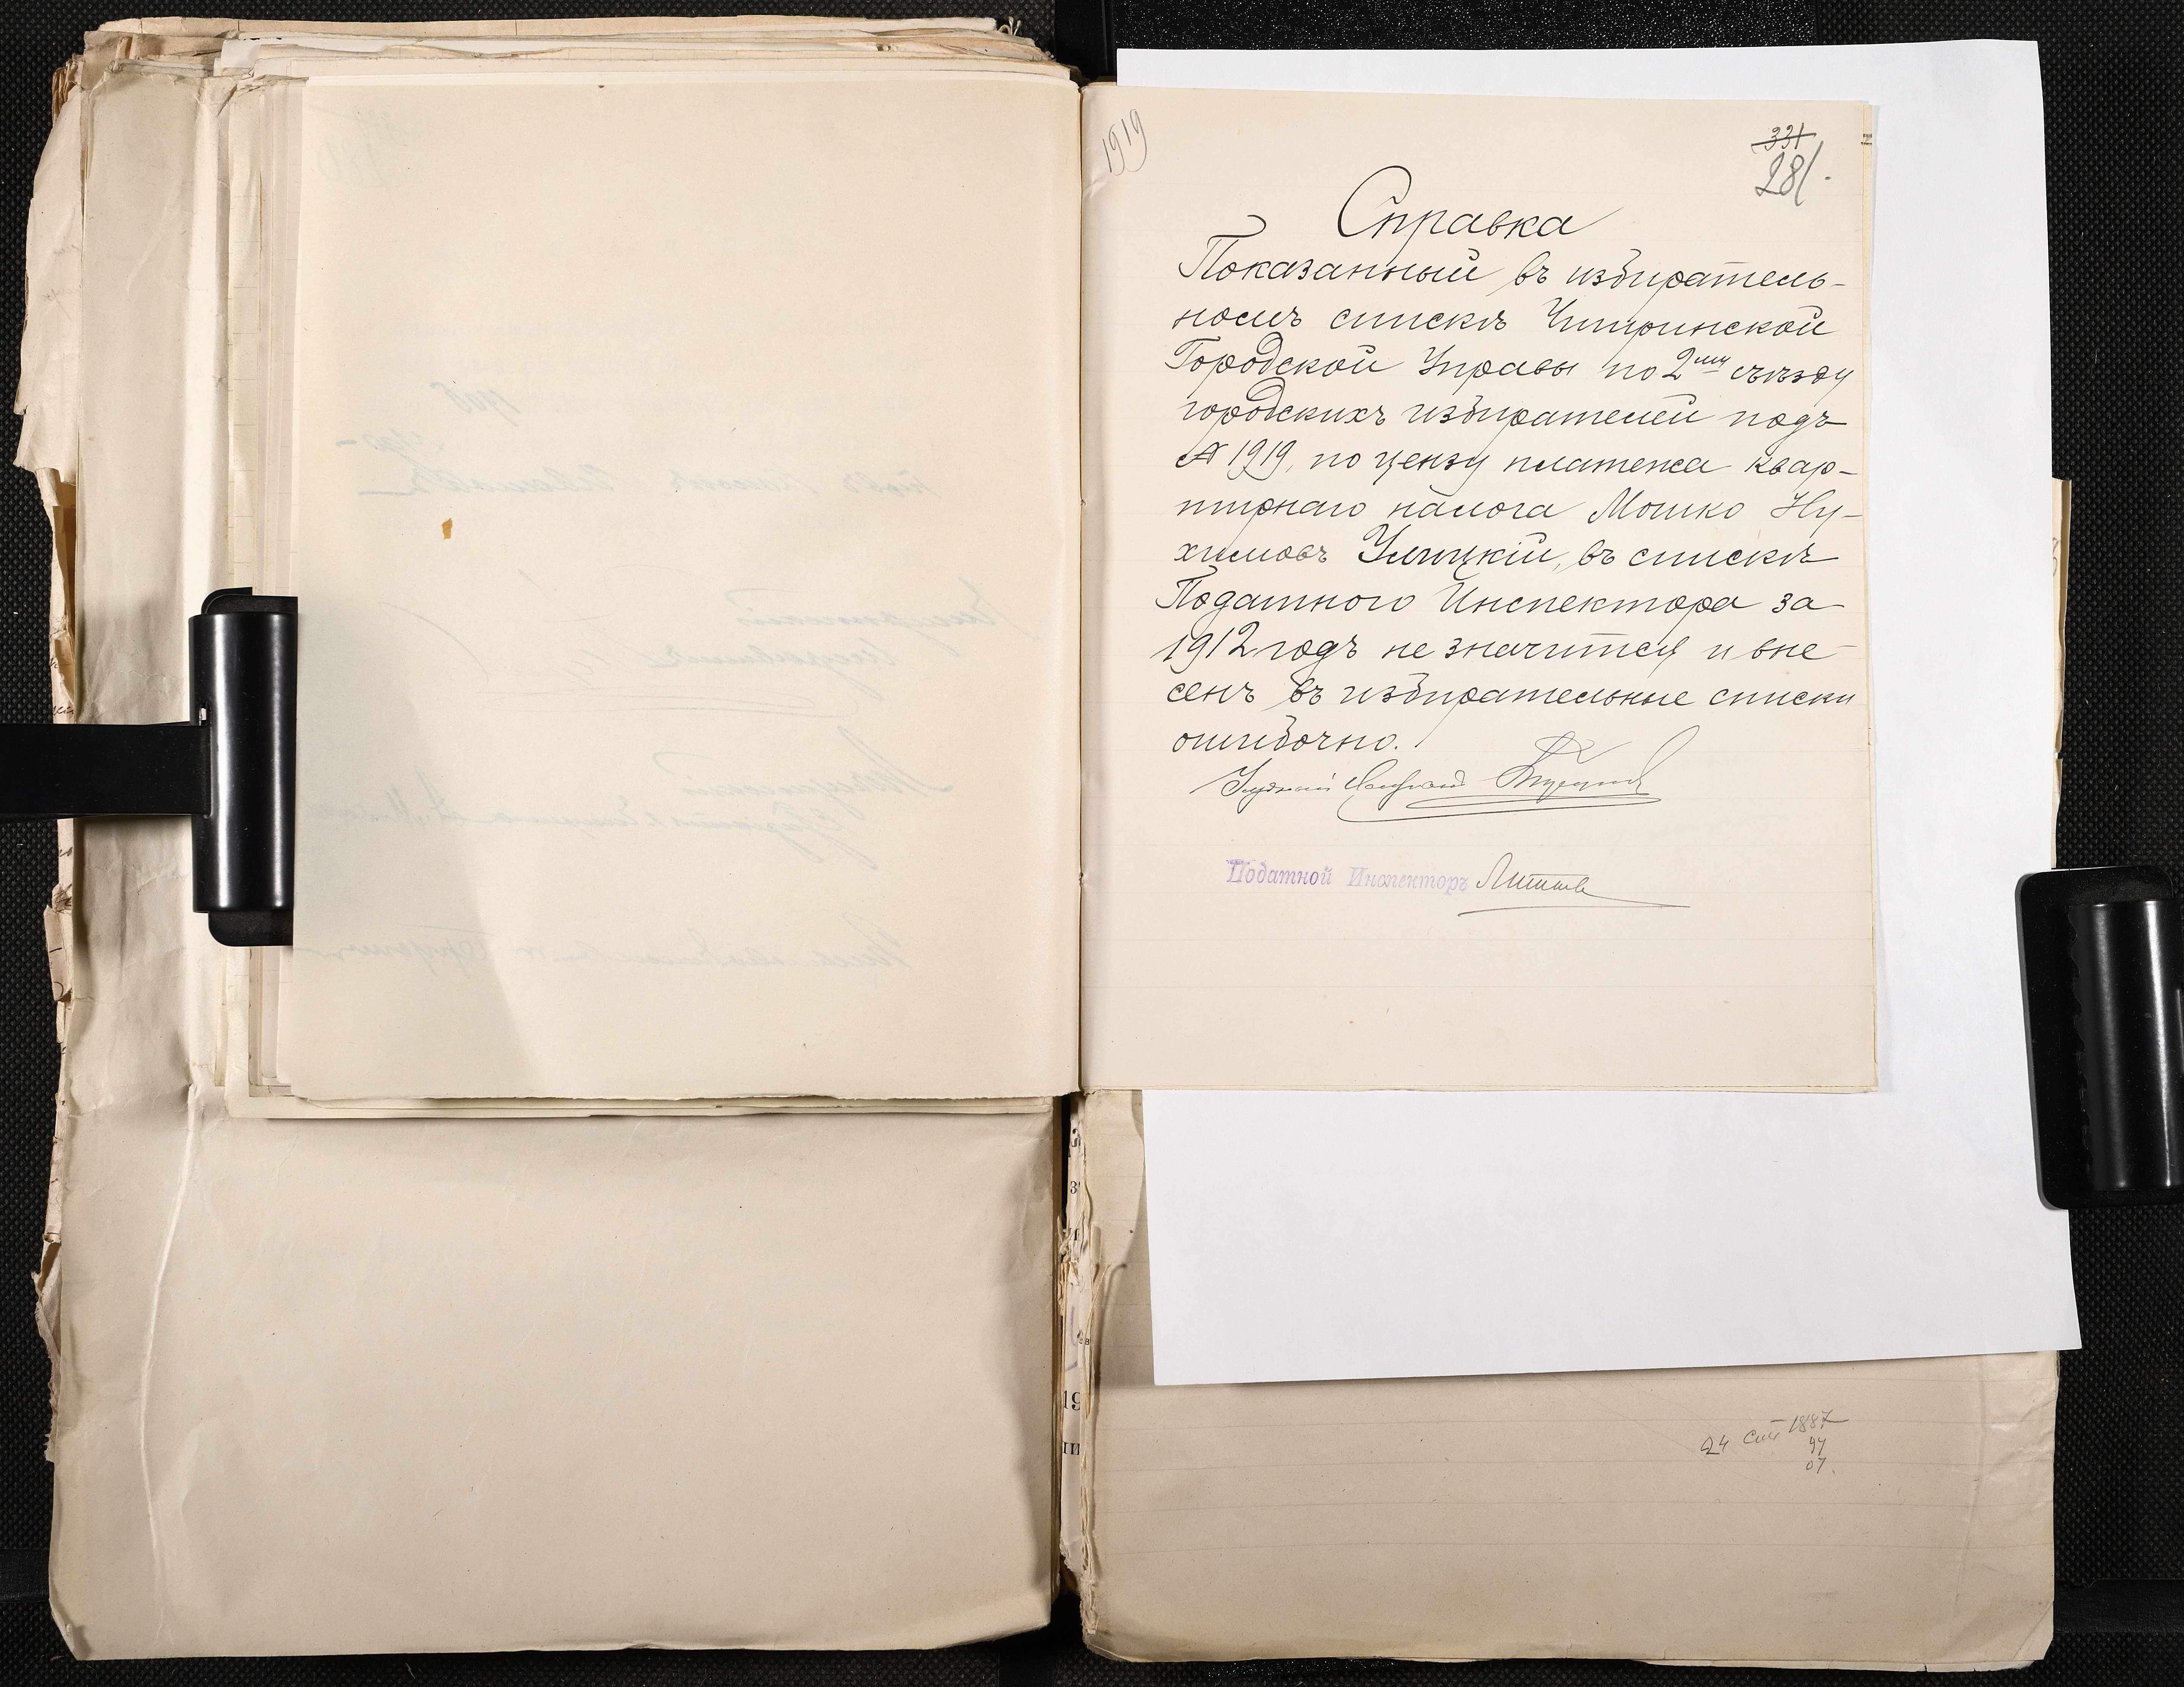 1919
331
281.
Справка
Показанный въ избиратель-
номъ спискѣ Читинской
Городской Управы по 2му съѣзду
городскихъ избирателей подъ
№ 1919, по цензу платежа квар-
тирнаго налога Мошко Ну-
химовъ Улицкій, въ спискѣ
Податного Инспектора за
1912 годъ не значится и вне-
сенъ въ избирательные списки
ошибочно.
Податной Инспекторъ
24 1887
97
07.